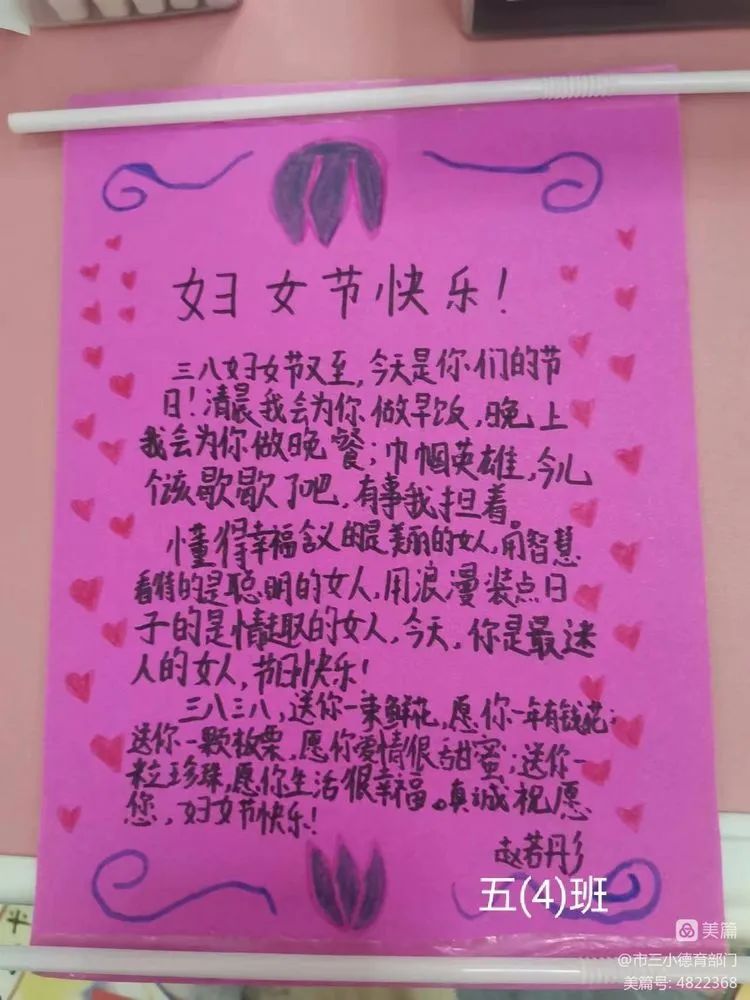 妇女节快乐!
三八妇女节又至,今天是你们的节
日!清晨我会为你做早饭,晚上
我会为你做晚餐;巾帼英雄,今儿
个该歇歇了吧,有事我担着。
懂得幸福含义的是美丽的女人,用智慧
看猜的是聪明的女人,用浪漫装点日
子的是情趣的女人,今天,你是最迷
人的女人,节日快乐!
三八三八,送你一束鲜花,愿你一年有钱花;
送你一颗板栗,愿你爱情很甜蜜;送你一
粒珍珠,愿你生活很幸福。真诚祝愿
您,妇女节快乐!
赵若彤
五(4)班
美篇
@市三小德育部门
美篇号: 4822368